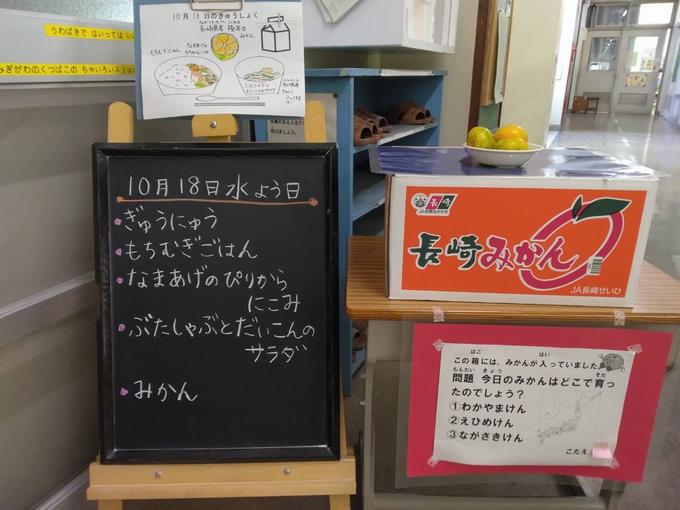 うわばきで はいっては い
みぎがわのくつばこの ちゃいろいスリッ
10月18日のきゅうしょく
長崎県産
みかん
もちむぎごはん
なまあげの
10月18日水よう日
ぎゅうにゅう
もちむぎごはん
なまあげのぴりから
にこみ
ぶたしゃぶとだいこんの
サラダ
みかん
長崎
JA長崎せいひ
長崎みかん
JA長崎せいひ
この箱には、みかんが入っていました。
はこ
はい
問題 今日のみかんはどこで育っ
もんだい
きょう
そだ
たのでしょう？
①わかやまけん
②えひめけん
③ながさきけん
こたえ